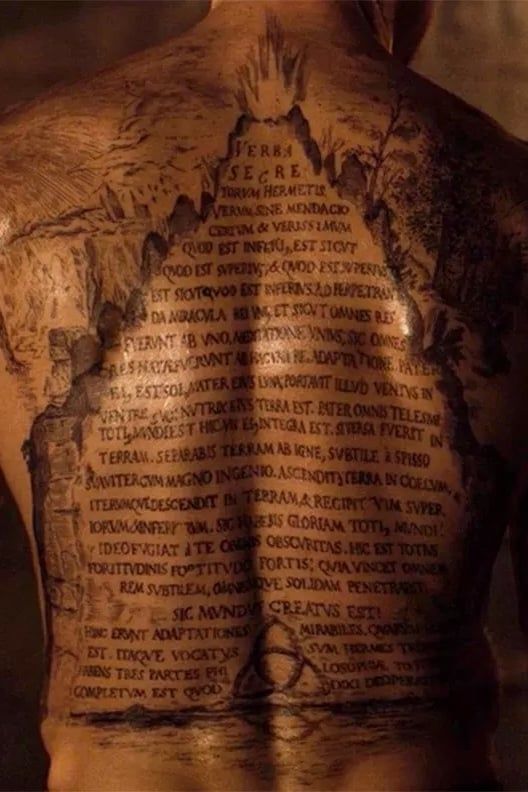 VERBA
SECRE
TORVM HERMETIS
VERVM, SINE MENDACIO
CERTVM & VERISSIMVM
QVOD EST INFERIVS, EST SICVT
QVOD EST SVPERIVS, & QVOD EST SVPERIVS
EST SICVT QVOD EST INFERIVS, AD PERPETRAN
DA MIRACVLA REI VNIVS, ET SICVT OMNES RES
FVERVNT AB VNO, MEDITATIONE VNIVS, SIC OMNES
RES NATÆ FVERVNT AB HAC VNA RE, ADAPTATIONE. PATER
EST SOL, MATER EIVS LVNA, PORTAVIT ILLVD VENTVS IN
VENTRE SVO: NVTRIX EIVS TERRA EST. PATER OMNIS TELESMI
TOTI, MVNDI EST HIC. VIS INTEGRA EST. SI VERSA FVERIT IN
TERRAM. SEPARABIS TERRAM AB IGNE, SVBTILE à SPISSO
SVAVITER CVM MAGNO INGENIO. ASCENDIT à TERRA IN COELVM,
ITERVMQVE DESCENDIT IN TERRAM, & RECIPIT VIM SVPER
IORVM & INFERIORVM. SIC HABEBIS GLORIAM TOTI, MVNDI!
IDEO FVGIAT à TE OMNIS OBSCVRITAS. HIC EST TOTIVS
FORTITVDINIS FORTITVDO FORTIS; QVIA VINCET OMNEM
REM SVBTILEM, OMNEMQVE SOLIDAM PENETRABIT.
SIC MVNDVS CREATVS EST!
HINC ERVNT ADAPTATIONES MIRABILES, QVARVM
EST. ITAQVE VOCATVS SVM HERMES
HABENS TRES PARTES PHI LOSOPHIÆ
COMPLETVM EST QVOD DIXI DE OPERATI